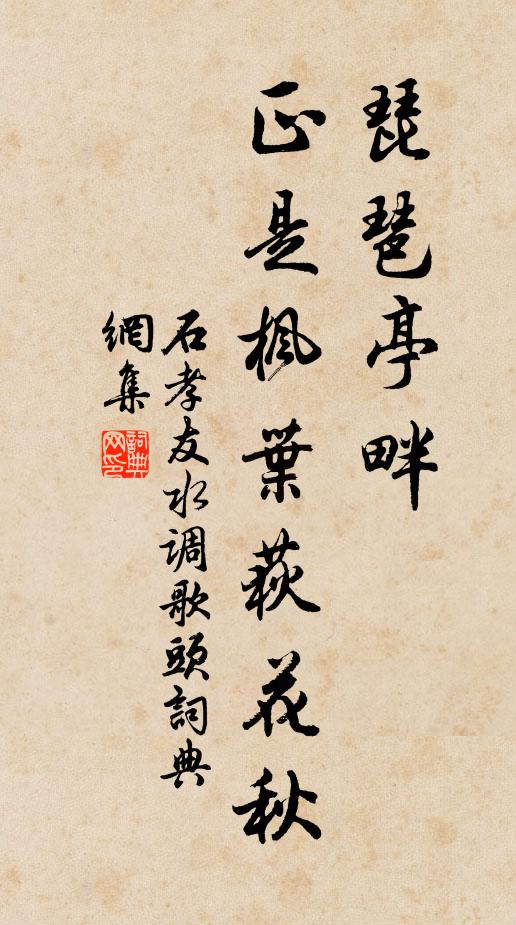 琵琶亭畔
正是楓葉荻花秋
石孝友水调歌頭詞典
網集
詞典
网印